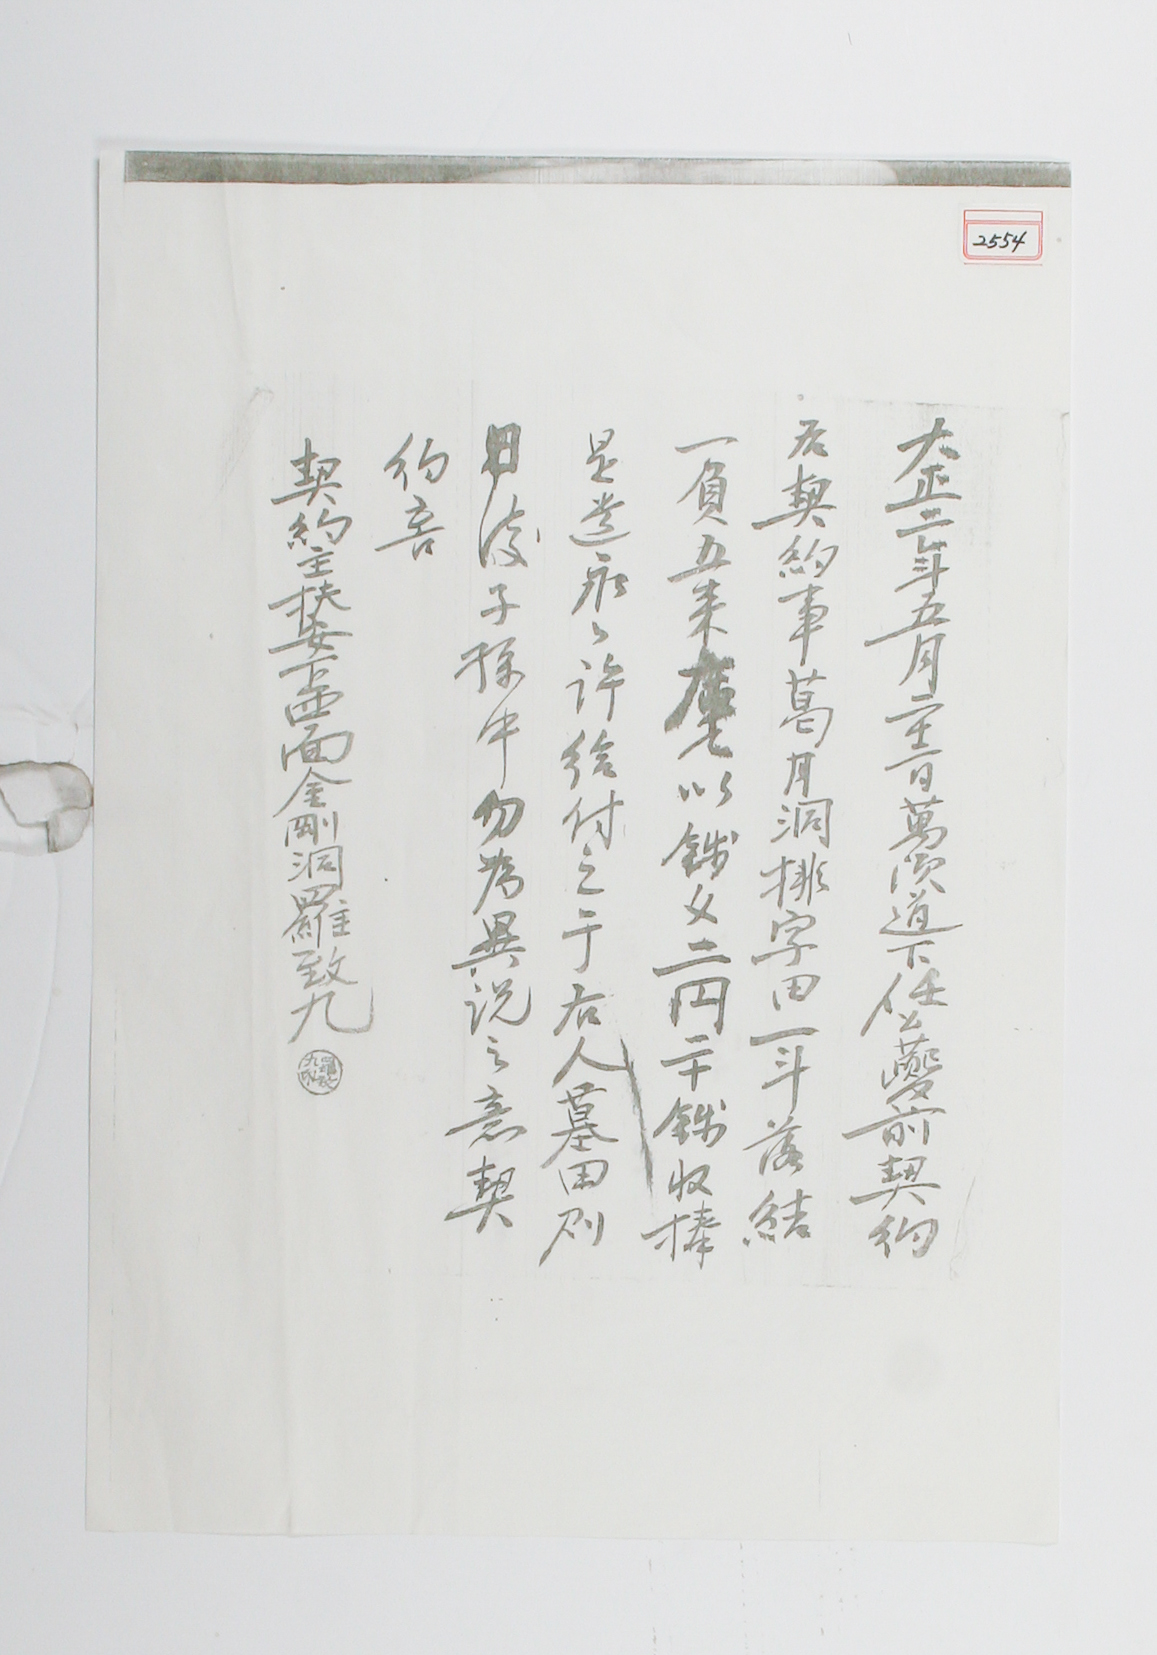 2554
大正二年五月二十二日萬頃道下任公夔前契約
右契約事葛月洞排字田一斗落結
一負五束 以錢文二円二十錢収捧
是遣永永許給付之于右人墓田則
日後子孫中勿為異說之意契
約言
契約主扶安下西面金剛洞羅致九